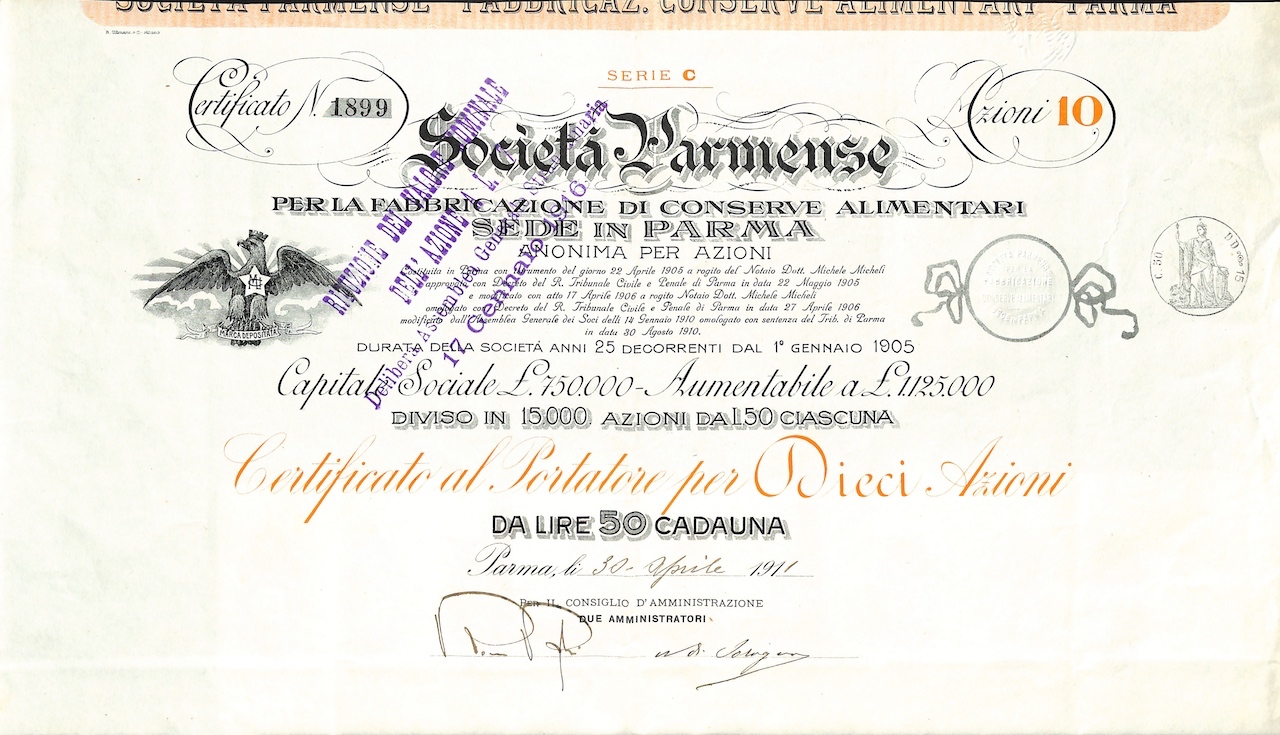 SOCIETÀ PARMENSE FABBRICAZ. CONSERVE ALIMENTARI PARMA
SERIE C
Certificato N. 1899
Azioni 10
Società Parmense
PER LA FABBRICAZIONE DI CONSERVE ALIMENTARI
SEDE IN PARMA
ANONIMA PER AZIONI
Costituita in Parma con Istrumento del giorno 22 Aprile 1905 a rogito del Notaio Dott. Michele Micheli
approvata con Decreto del R. Tribunale Civile e Penale di Parma in data 22 Maggio 1905
e modificato con atto 17 Aprile 1906 a rogito Notaio Dott. Michele Micheli
omologato con Decreto del R. Tribunale Civile e Penale di Parma in data 27 Aprile 1906
modificato dall'Assemblea Generale dei Soci delli 14 Gennaio 1910 omologato con sentenza del Trib. di Parma
in data 30 Agosto 1910.
DURATA DELLA SOCIETÁ ANNI 25 DECORRENTI DAL 1° GENNAIO 1905
Capitale Sociale £. 750.000 - Aumentabile a £. 1.125.000
DIVISO IN 15.000 AZIONI DA L.50 CIASCUNA
Certificato al Portatore per Dieci Azioni
DA LIRE 50 CADAUNA
Parma, li 30 - Aprile 1911
PER IL CONSIGLIO D'AMMINISTRAZIONE
DUE AMMINISTRATORI
RIDUZIONE DEL VALORE NOMINALE
DELL'AZIONE A L.
Delibera Assemblea Generale Straordinaria
17 Gennaio 1916.
MARCA DEPOSITATA
C. 50
DD 15